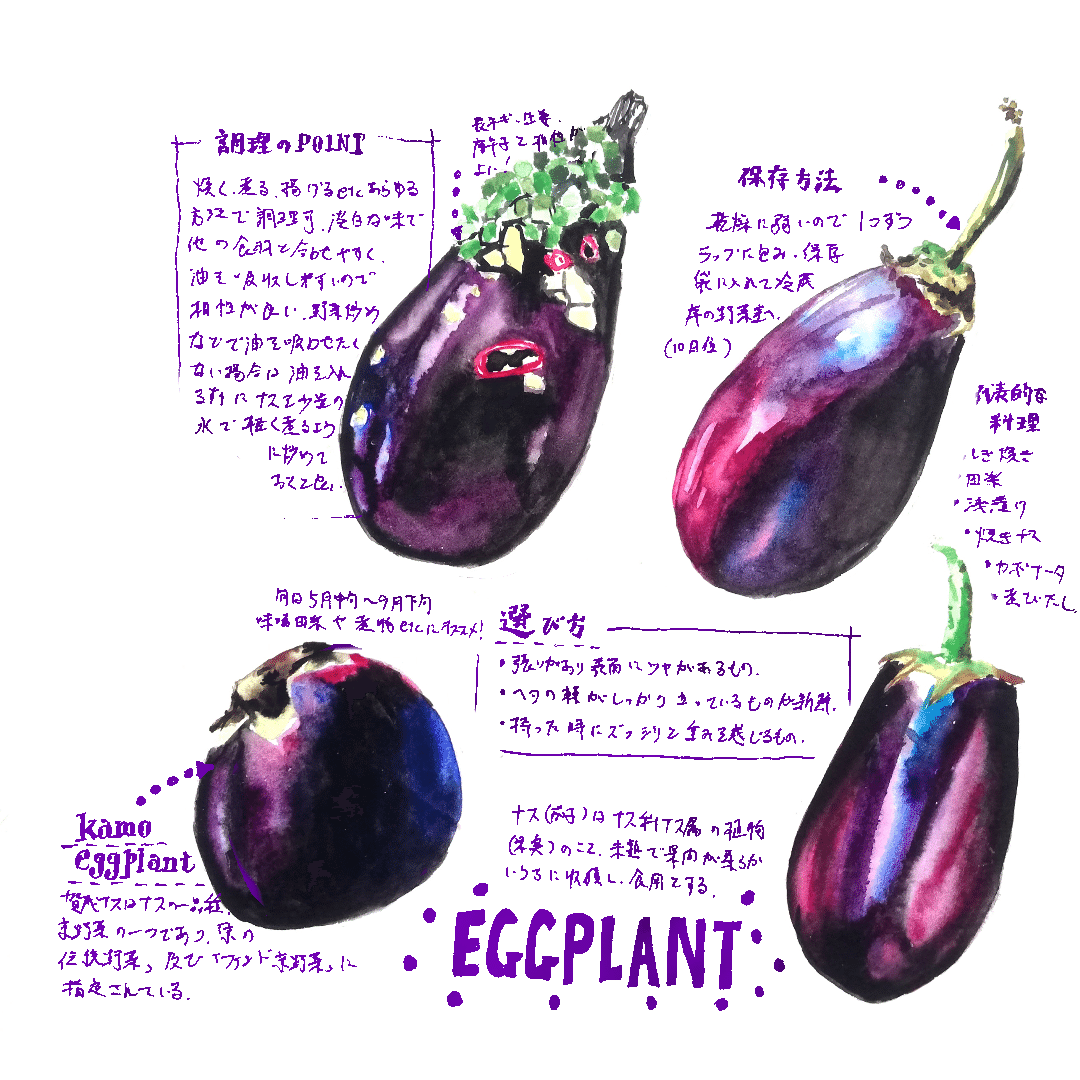 調理のPOINT
焼く、煮る、揚げるetcあらゆる
方法で調理可、淡白な味で
他の食材と合わせやすく、
油を吸収しやすいので
相性が良い、野菜炒め
などで油を吸わせたく
ない場合は油を入れ
る前にナスを少量の
水で軽く煮るよう
に炒めて
おくと良い。
長ネギ、生姜、
唐辛子と相性が
保存方法
乾燥に弱いので1つずつ
ラップに包み、保存
袋に入れて冷蔵
庫の野菜室へ。
(10日位)
代表的な
料理
しぎ焼き
田楽
・浅漬け
・焼きナス
・カポナータ
・煮びたし
旬は5月中旬〜9月下旬
味噌田楽や煮物etcにオススメ!
選び方
・張りがあり表面にツヤがあるもの。
・ヘタの棘がしっかり立っているものが新鮮。
・持った時にズッシリと重みを感じるもの。
kamo
eggplant
賀茂ナスはナスの一品種。
京野菜の一つであり、京の
伝統野菜、及び「ブランド京野菜」に
指定されている。
ナス(茄子)はナス科ナス属の植物
(果実)のこと。未熟で果肉が柔らか
いうちに収穫し、食用とする。
EGGPLANT